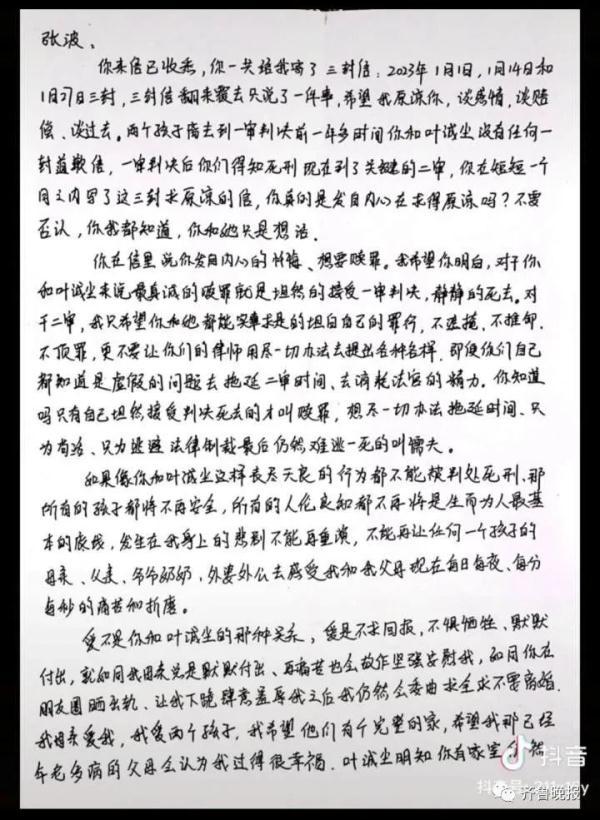 张波，
你来信已收悉，你一共给我寄了三封信：2023年1月1日，1月14日和
1月27日三封，三封信翻来覆去只说了一件事，希望我原谅你，谈感情，谈赔
偿、谈过去。两个孩子离去到一审判决前一年多时间你和叶诚尘没有任何一
封道歉信，一审判决后你们得知死刑现在到了关键的二审，你在短短一个
月之内写了这三封求原谅的信，你真的是发自内心在求得原谅吗？不要
否认，你我都知道，你和她只是想活．
你在信里说你发自内心的忏悔、想要赎罪。我希望你明白，对于你
和叶诚尘来说最真诚的赎罪就是坦然的接受一审判决，静静的死去。对
于二审，我只希望你和她都能实事求是的坦白自己的罪行，不遮掩、不推卸、
不顶罪，更不要让你们的律师用尽一切办法去提出各种各样，即使你们自己
都知道是虚假的问题去拖延二审时间、去消耗法官的精力。你知道
吗只有自己坦然接受判决死去的才叫赎罪，想尽一切办法拖延时间、只
为苟活、只为逃避法律制裁最后仍然难逃一死的叫懦夫。
如果像你和叶诚尘这样丧尽天良的行为都不能被判处死刑，那
所有的孩子都将不再安全，所有的人伦良知都不再将是生而为人最基
本的底线，发生在我身上的悲剧不能再重演，不能再让任何一个孩子的
母亲、父亲、爷爷奶奶，外婆外公去感受我和我父母现在每日每夜、每分
每秒的痛苦和折磨。
爱不是你和叶诚尘的那种关系，爱是不求回报，不惧牺牲、默默
付出，就如同我母亲总是默默付出、再痛苦也会故作坚强安慰我，如同你在
朋友圈晒出轨、让我下跪肆意羞辱我之后我仍然会委曲求全求不要离婚．
我母亲爱我，我爱两个孩子，我希望他们有个完整的家，希望我那已经
年老多病的父母会认为我过得很幸福．叶诚尘明知你有家室
抖音
抖音号：
齐鲁晚报